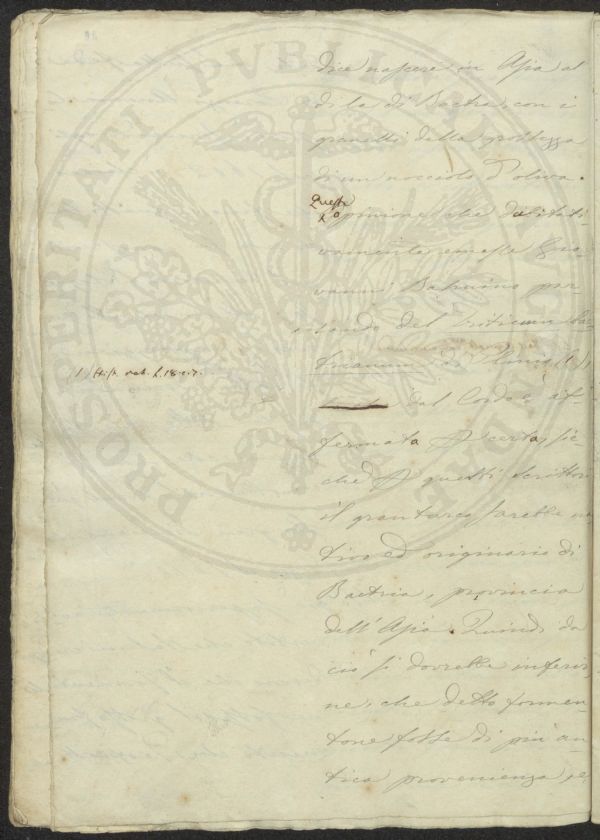 dice nascere in Asia al
di là di Bactra, con i
granelli della grossezza
di un nocciolo d'oliva.
Questa
opinione che
vamente emesse Gio-
vanni Bahuino par-
lando del triticum bac-
trianum di Plinio (1)
(1) Hist. nat. l. 18. c. 7.
dal Cordo è af-
fermata p certa, sic-
chè p questi scrittori
il granturco sarebbe na-
tivo ed originario di
Bactria, provincia
dell'Asia. Quindi da
ciò si dovrebbe inferir-
ne, che detto formen-
tone fosse di più an-
tica provenienza, e
PROSPERITATI PVBLICAE AVGENDAE